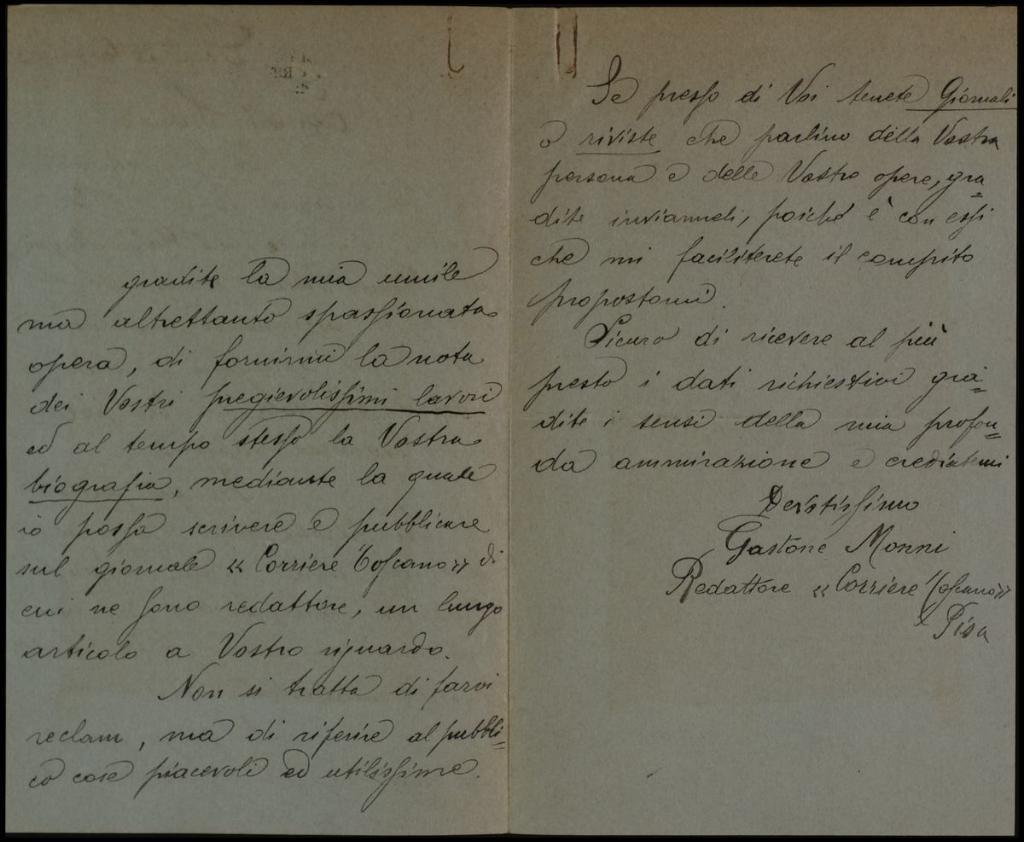 gradite la mia umile
ma altrettanto spassionata
opera, di fornirmi la nota
dei Vostri pregievolissimi lavori
ed al tempo stesso la Vostra
biografia, mediante la quale
io possa scrivere e pubblicare
sul giornale « Corriere Toscano » di
cui ne sono redattore, un lungo
articolo a Vostro riguardo.
Non si tratta di farvi
reclam, ma di riferire al pubbli=
co cose piacevoli ed utilissime.
Se presso di Voi tenete Giornali
o riviste che parlino della Vostra
persona e delle Vostre opere, gra=
dite inviarmeli, poiché è con essi
che mi faciliterete il compito
propostomi.
Sicuro di ricevere al più
presto i dati richiestivi gra=
dite i sensi della mia profon=
da ammirazione e crediatemi
Devotissimo
Gastone Monni
Redattore « Corriere Toscano »
Pisa